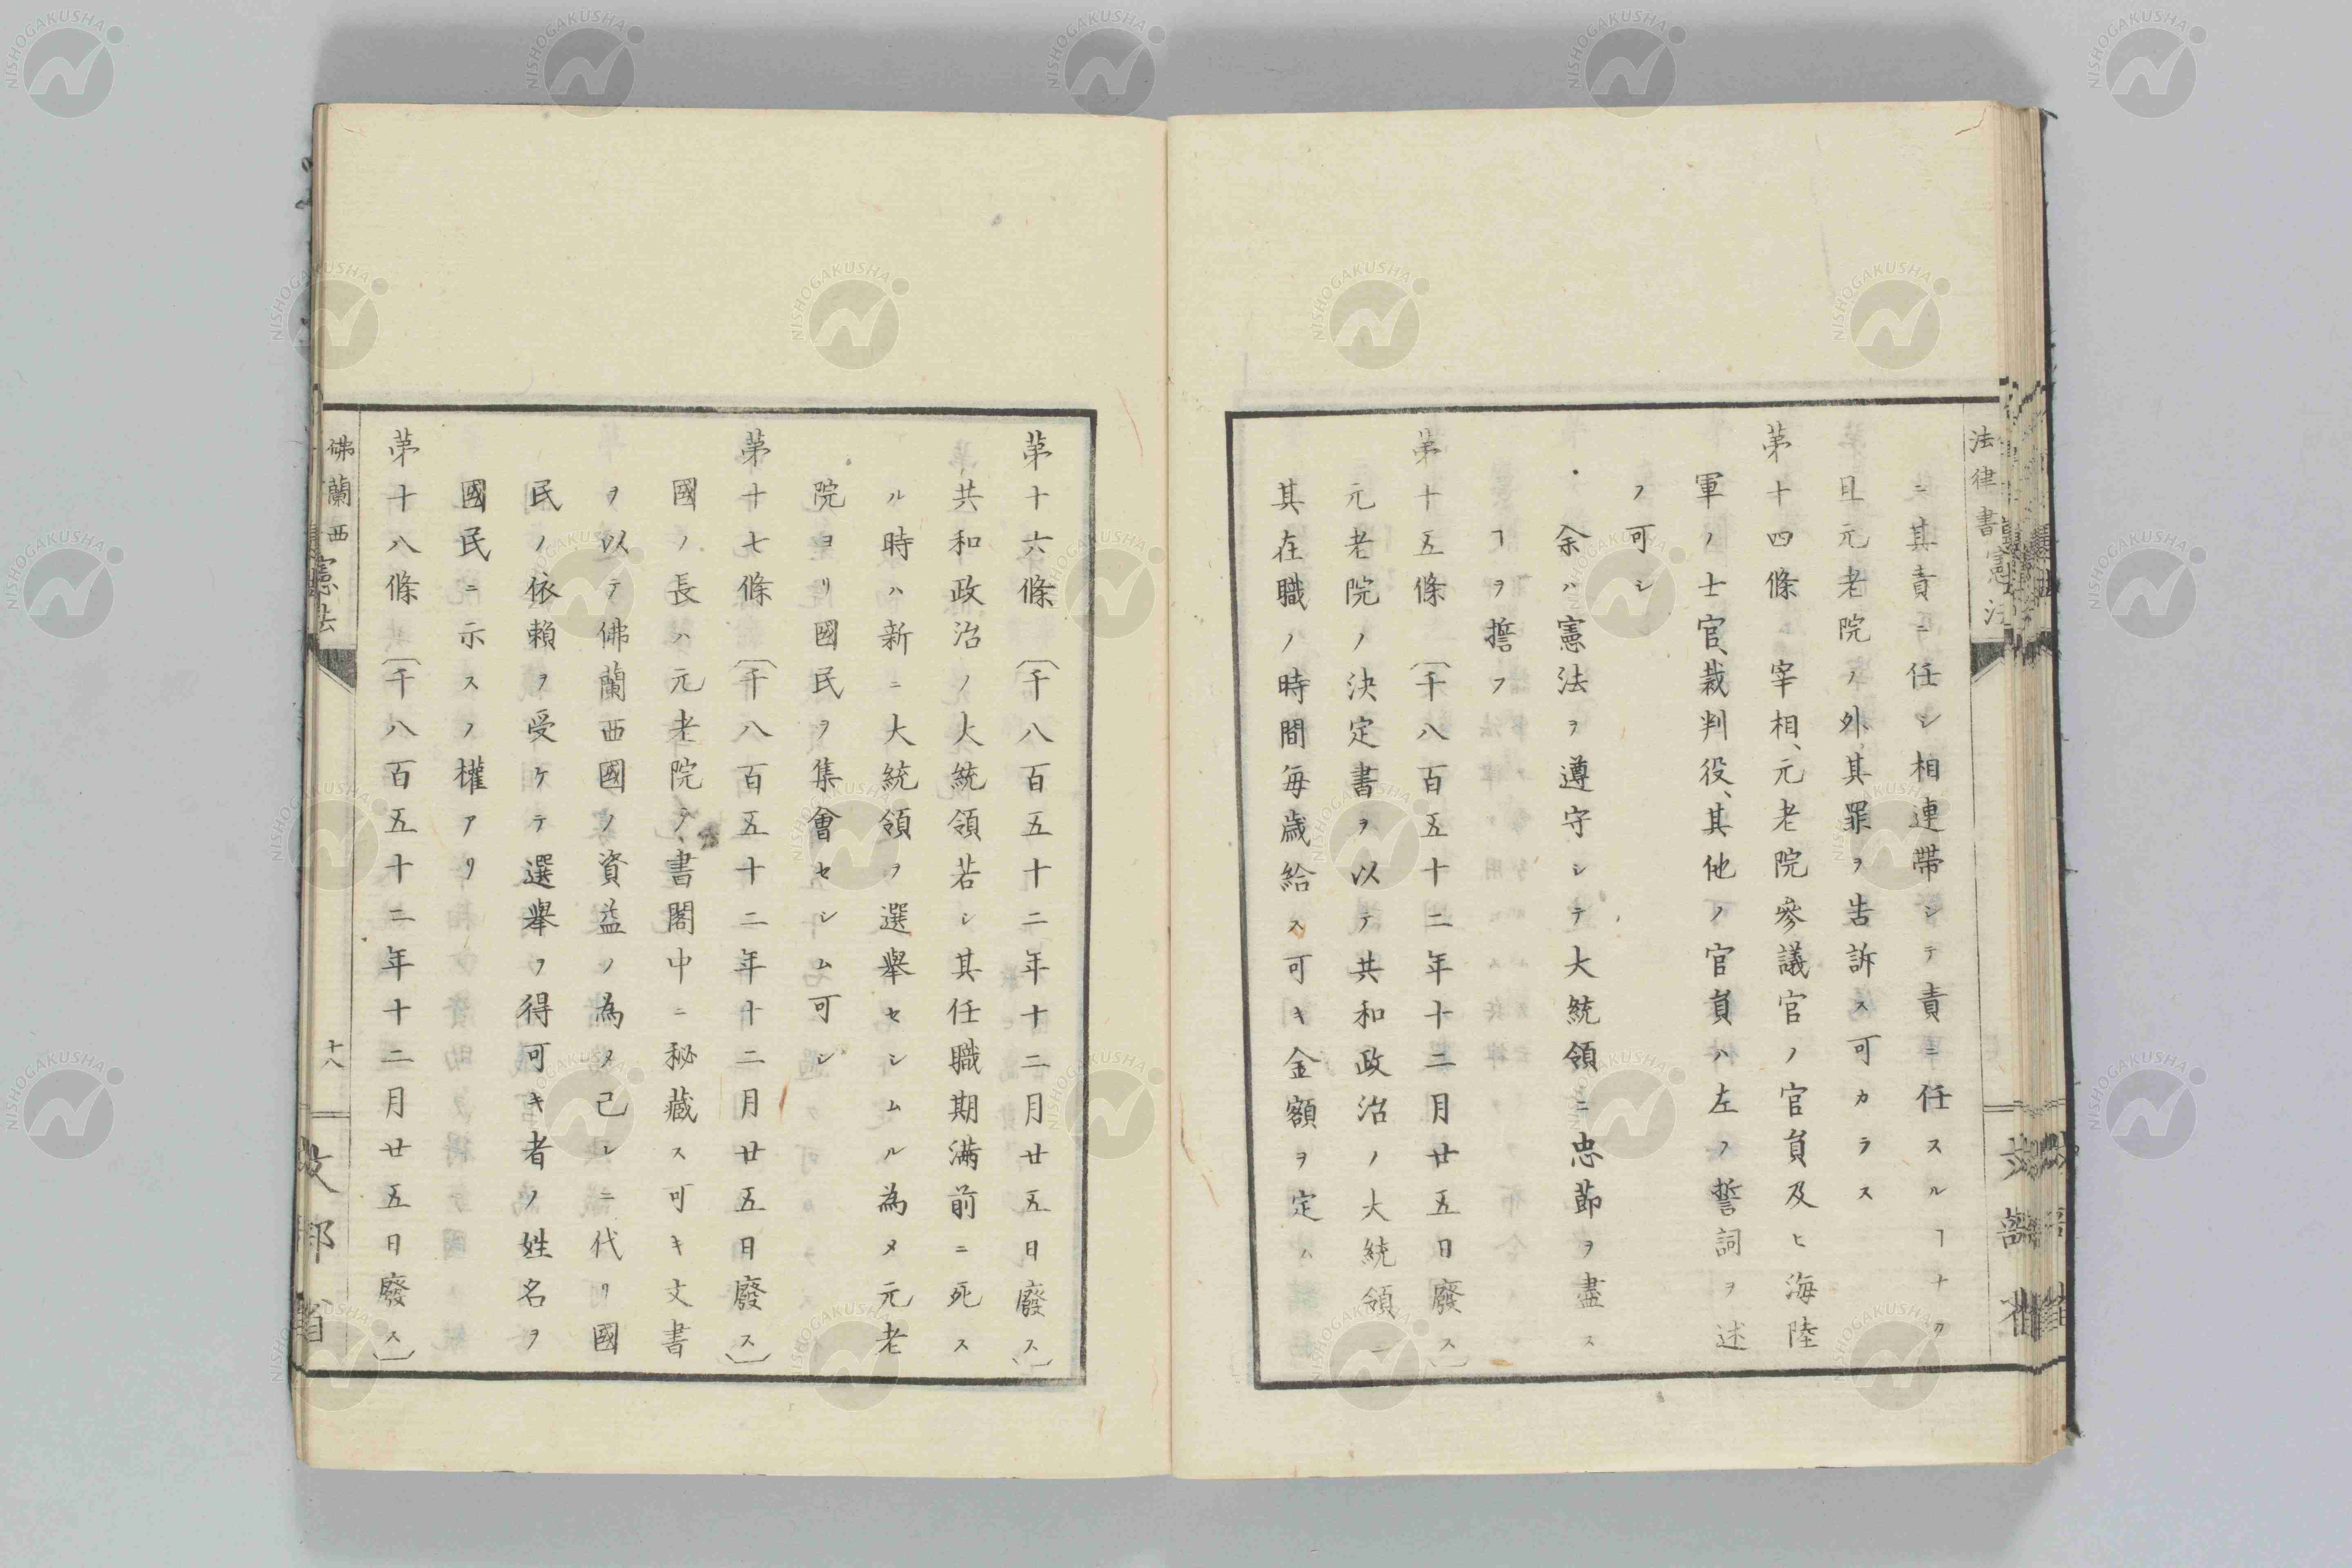 法律書 憲法
ニ其責ニ任シ相連帶シテ責ニ任スルヿナク
且元老院ノ外其罪ヲ告訴ス可カラス
第十四條 宰相、元老院參議官ノ官員及ヒ海陸
軍ノ士官、裁判役、其他ノ官員ハ左ノ誓詞ヲ述
フ可シ
余ハ憲法ヲ遵守シテ大統領ニ忠節ヲ盡ス
ヿヲ誓フ
第十五條 〔千八百五十二年十二月廿五日廢ス〕
元老院ノ決定書ヲ以テ共和政治ノ大統領ニ
其在職ノ時間每歲給ス可キ金額ヲ定ム
第十六條 〔千八百五十二年十二月廿五日廢ス〕
共和政治ノ大統領若シ其任職期滿前ニ死ス
ル時ハ新ニ大統領ヲ選擧セシムル為メ元老
院ヨリ國民ヲ集會セシム可シ
第十七條 〔千八百五十二年十二月廿五日廢ス〕
國ノ長ハ元老院ノ書閣中ニ秘藏ス可キ文書
ヲ以テ佛蘭西國ノ資益ノ為メ己レニ代リ國
民ノ依賴ヲ受ケテ選擧ヲ得可キ者ノ姓名ヲ
國民ニ示スノ權アリ
第十八條 〔千八百五十二年十二月廿五日廢ス〕
佛蘭西 憲法 十八 文部省
NISHOGAKUSHA